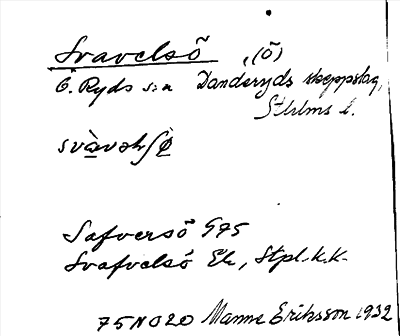 Svavelsö , (Ö)
Ö. Ryds s:n Danderyds skeppslag,
Sthlms l.
Safversö G75
Svafvelsö Ek, Stpl. k.k.
75NO20 Manne Eriksson 1932